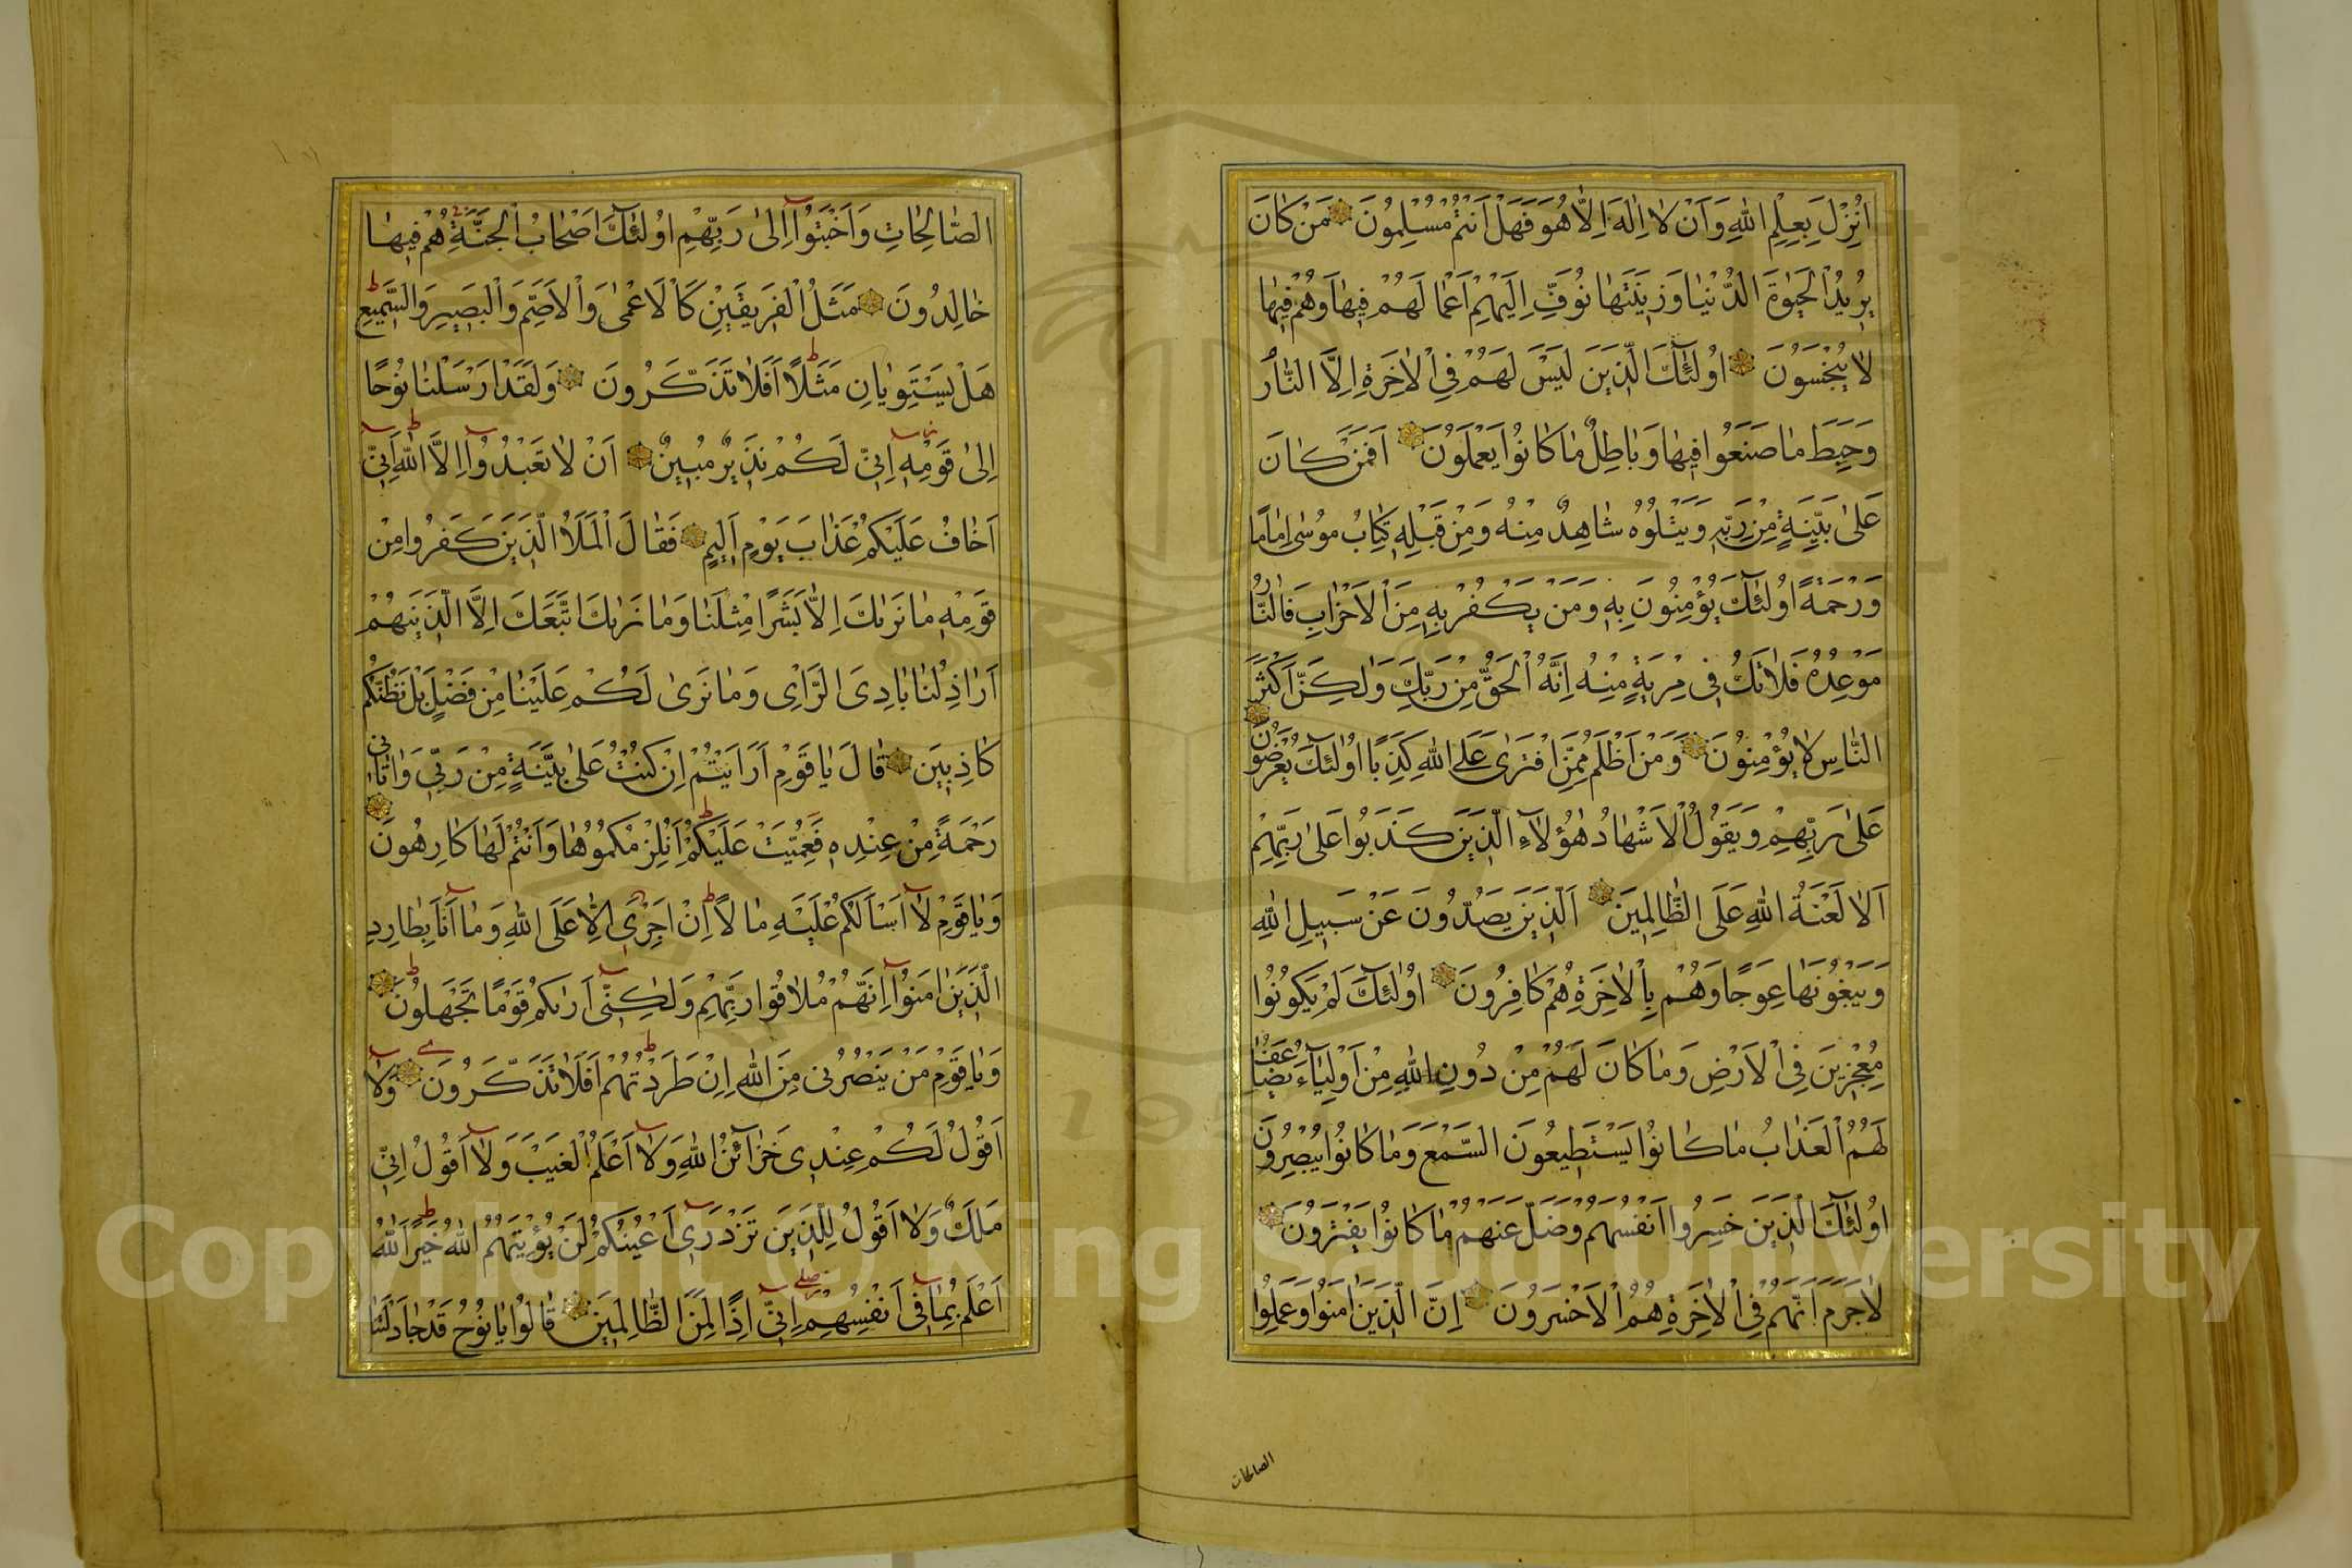 اُنْزِلَ بِعِلْمِ اللّٰهِ وَاَنْ لَا اِلٰهَ اِلَّا هُوَ فَهَلْ اَنْتُمْ مُسْلِمُونَ مَنْ كَانَ
يُرِيدُ الْحَيٰوةَ الدُّنْيَا وَزِينَتَهَا نُوَفِّ اِلَيْهِمْ اَعْمَالَهُمْ فِيهَا وَهُمْ فِيهَا
لَا يُبْخَسُونَ اُولٰئِكَ الَّذِينَ لَيْسَ لَهُمْ فِي الْاٰخِرَةِ اِلَّا النَّارُ
وَحَبِطَ مَا صَنَعُوا فِيهَا وَبَاطِلٌ مَا كَانُوا يَعْمَلُونَ اَفَمَنْ كَانَ
عَلٰى بَيِّنَةٍ مِنْ رَبِّهِ وَيَتْلُوهُ شَاهِدٌ مِنْهُ وَمِنْ قَبْلِهِ كِتَابُ مُوسٰى اِمَامًا
وَرَحْمَةً اُولٰئِكَ يُؤْمِنُونَ بِهِ وَمَنْ يَكْفُرْ بِهِ مِنَ الْاَحْزَابِ فَالنَّارُ
مَوْعِدُهُ فَلَا تَكُ فِي مِرْيَةٍ مِنْهُ اِنَّهُ الْحَقُّ مِنْ رَبِّكَ وَلٰكِنَّ اَكْثَرَ
النَّاسِ لَا يُؤْمِنُونَ وَمَنْ اَظْلَمُ مِمَّنِ افْتَرٰى عَلَى اللّٰهِ كَذِبًا اُولٰئِكَ يُعْرَضُونَ
عَلٰى رَبِّهِمْ وَيَقُولُ الْاَشْهَادُ هٰؤُلَاءِ الَّذِينَ كَذَبُوا عَلٰى رَبِّهِمْ
اَلَا لَعْنَةُ اللّٰهِ عَلَى الظَّالِمِينَ اَلَّذِينَ يَصُدُّونَ عَنْ سَبِيلِ اللّٰهِ
وَيَبْغُونَهَا عِوَجًا وَهُمْ بِالْاٰخِرَةِ هُمْ كَافِرُونَ اُولٰئِكَ لَمْ يَكُونُوا
مُعْجِزِينَ فِي الْاَرْضِ وَمَا كَانَ لَهُمْ مِنْ دُونِ اللّٰهِ مِنْ اَوْلِيَاءَ يُضَاعَفُ
لَهُمُ الْعَذَابُ مَا كَانُوا يَسْتَطِيعُونَ السَّمْعَ وَمَا كَانُوا يُبْصِرُونَ
اُولٰئِكَ الَّذِينَ خَسِرُوا اَنْفُسَهُمْ وَضَلَّ عَنْهُمْ مَا كَانُوا يَفْتَرُونَ
لَا جَرَمَ اَنَّهُمْ فِي الْاٰخِرَةِ هُمُ الْاَخْسَرُونَ اِنَّ الَّذِينَ اٰمَنُوا وَعَمِلُوا
الصالحات
الصَّالِحَاتِ وَاَخْبَتُوا اِلٰى رَبِّهِمْ اُولٰئِكَ اَصْحَابُ الْجَنَّةِ هُمْ فِيهَا
خَالِدُونَ مَثَلُ الْفَرِيقَيْنِ كَالْاَعْمٰى وَالْاَصَمِّ وَالْبَصِيرِ وَالسَّمِيعِ
هَلْ يَسْتَوِيَانِ مَثَلًا اَفَلَا تَذَكَّرُونَ وَلَقَدْ اَرْسَلْنَا نُوحًا
اِلٰى قَوْمِهِ اِنِّي لَكُمْ نَذِيرٌ مُبِينٌ اَنْ لَا تَعْبُدُوا اِلَّا اللّٰهَ اِنِّي
اَخَافُ عَلَيْكُمْ عَذَابَ يَوْمٍ اَلِيمٍ فَقَالَ الْمَلَاُ الَّذِينَ كَفَرُوا مِنْ
قَوْمِهِ مَا نَرٰيكَ اِلَّا بَشَرًا مِثْلَنَا وَمَا نَرٰيكَ اتَّبَعَكَ اِلَّا الَّذِينَ هُمْ
اَرَاذِلُنَا بَادِيَ الرَّاْيِ وَمَا نَرٰى لَكُمْ عَلَيْنَا مِنْ فَضْلٍ بَلْ نَظُنُّكُمْ
كَاذِبِينَ قَالَ يَا قَوْمِ اَرَاَيْتُمْ اِنْ كُنْتُ عَلٰى بَيِّنَةٍ مِنْ رَبِّي وَاٰتَانِي
رَحْمَةً مِنْ عِنْدِهِ فَعُمِّيَتْ عَلَيْكُمْ اَنُلْزِمُكُمُوهَا وَاَنْتُمْ لَهَا كَارِهُونَ
وَيَا قَوْمِ لَا اَسْاَلُكُمْ عَلَيْهِ مَالًا اِنْ اَجْرِيَ اِلَّا عَلَى اللّٰهِ وَمَا اَنَا بِطَارِدِ
الَّذِينَ اٰمَنُوا اِنَّهُمْ مُلَاقُوا رَبِّهِمْ وَلٰكِنِّي اَرٰيكُمْ قَوْمًا تَجْهَلُونَ
وَيَا قَوْمِ مَنْ يَنْصُرُنِي مِنَ اللّٰهِ اِنْ طَرَدْتُهُمْ اَفَلَا تَذَكَّرُونَ وَلَا
اَقُولُ لَكُمْ عِنْدِي خَزَائِنُ اللّٰهِ وَلَا اَعْلَمُ الْغَيْبَ وَلَا اَقُولُ اِنِّي
مَلَكٌ وَلَا اَقُولُ لِلَّذِينَ تَزْدَرِي اَعْيُنُكُمْ لَنْ يُؤْتِيَهُمُ اللّٰهُ خَيْرًا اَللّٰهُ
اَعْلَمُ بِمَا فِي اَنْفُسِهِمْ اِنِّي اِذًا لَمِنَ الظَّالِمِينَ قَالُوا يَا نُوحُ قَدْ جَادَلْتَنَا
Copyright © King Saud University